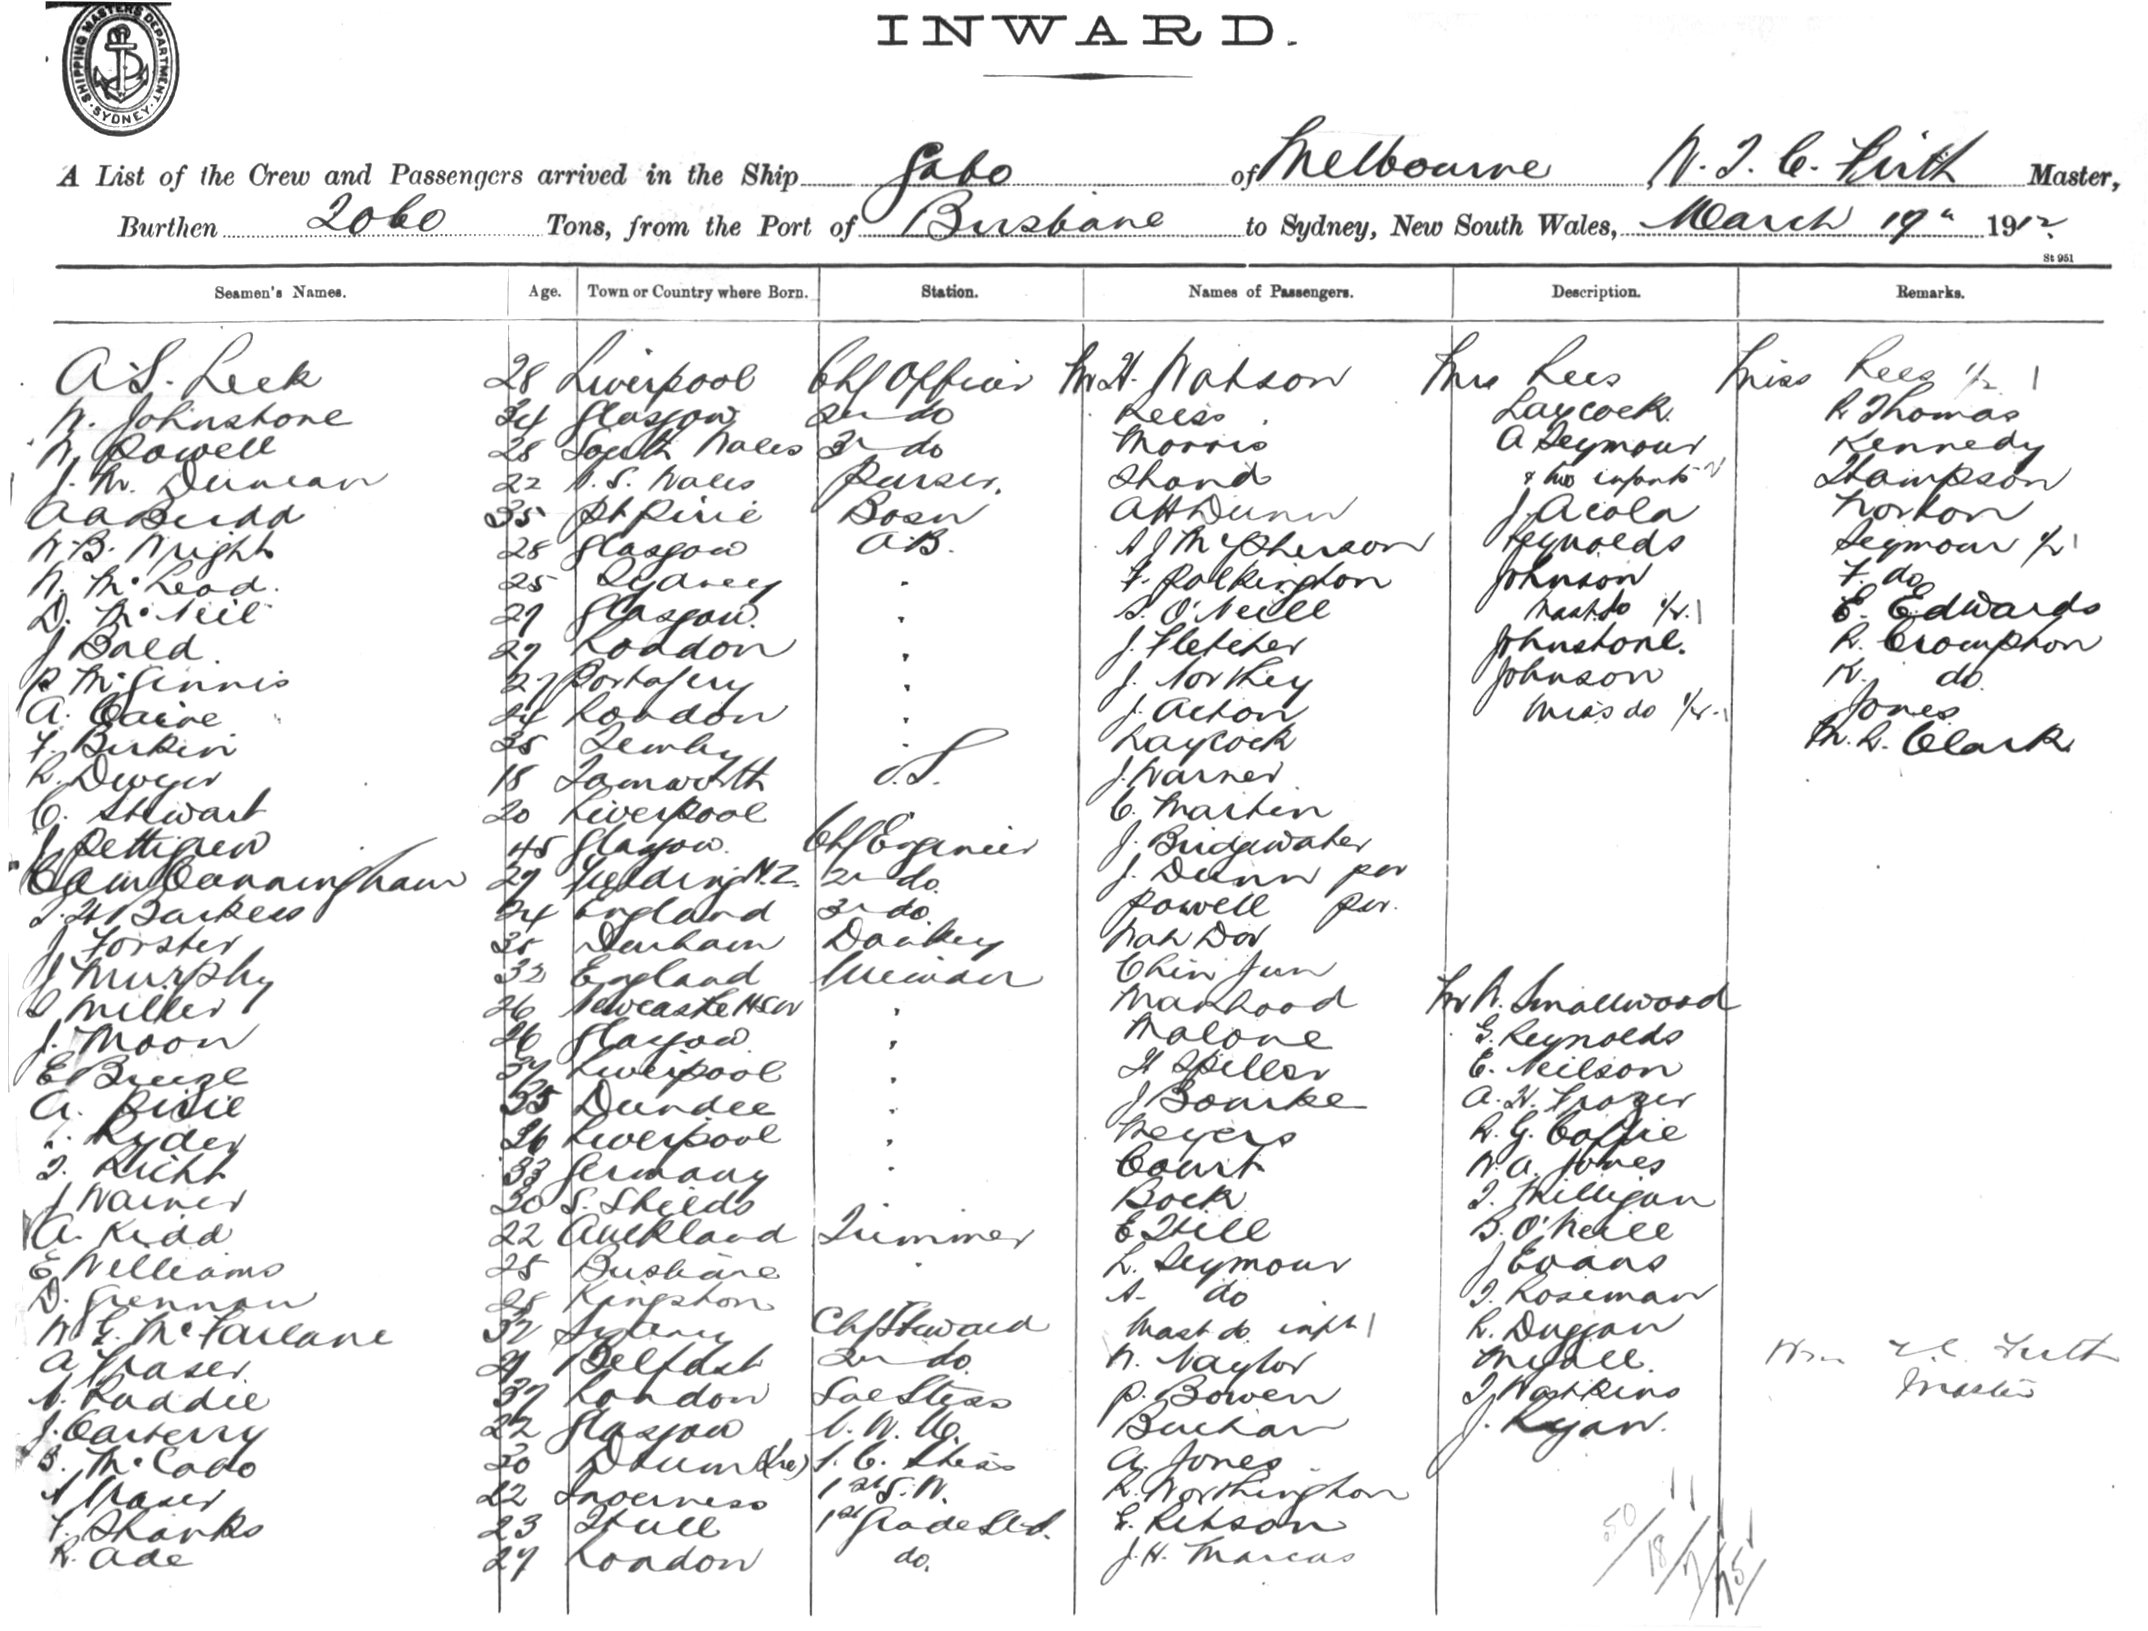 SHIPPING MASTERS DEPARTMENT. SYDNEY
INWARD.
A List of the Crew and Passengers arrived in the Ship Gabo of Melbourne W. J. C. Firth Master,
Burthen 2060 Tons, from the Port of Brisbane to Sydney, New South Wales, March 19th 1912.
St 951
Seamen's Names. Age. Town or Country where Born. Station. Names of Passengers. Description. Remarks.
A. S. Leek 28 Liverpool Chf Officer Mr H. Watson Mrs Lees Miss Lees 1/2 1
W. Johnstone 34 Glasgow 2nd do Leess Laycock R Thomas
W. Powell 28 South Wales 3rd do Morris A Seymour Kennedy
J. M. Duncan 22 N. S. Wales Purser. Shand & two infants Thampson
A A Budd 35 Pt Pirie Bosn A H Dunn J. Acola Norton
W. B. Wright 28 Glasgow A.B. A J McPherson Reynolds Seymour 1/2 1
N. McLeod. 25 Sydney " F. Polkington Johnson F. do
D. McNeil 27 Glasgow. " S. O'Neill Mast do 1/2. 1 E. Edwards
J Bald. 29 London " J. Fletcher Johnstone. R. Crompton
P McGinnis 27 Portafery " J. Northey Johnson K. do.
A. Caine 24 London " J. Acton Miss do 1/2. 1 Jones
F. Birkin 35 Tenby " Laycock M. R. Clark
R. Dwyer 18 Tamworth O.S. J. Warner
C. Stewart 20 Liverpool C. Martin
J Pettigrew 45 Glasgow. Chf Engineer J. Bridgwater
Cunningham 29 Feilding N.Z. 2nd do. J. Dunn per
T. H. Barkess 24 England 3rd do. Powell per.
J. Forster 35 Durham Donkey Wah Dor
J Murphy 32 England fireman Chin Jun
S Miller 26 Newcastle NSW " Manhood Mr W. Smallwood
J. Moon 26 Glasgow " Malone G. Reynolds
E Breeze 37 Liverpool " H Spiller E. Neilson
A. Pirie 35 Dundee " J Bourke A. W. Frazer
Ryder 26 Liverpool " Meyers R. G. Coffie
T. Licht 33 Germany " Court W. A. Jones
J Warner 30 S. Shields Bock T. Milligan
A. Kidd 22 Auckland Trimmer E Hill B. O'Neill
E Williams 25 Brisbane " L. Seymour J Evans
D. Grennan 28 Kingston A. do T. Roseman
W G. McFarlane 32 Sydney Chf Steward Mast do. inft 1 R. Duggan
A Fraser. 21 Belfast 2nd do. W. Naylor Myall.
Ruddie 37 London Sal Stess P. Bowen T. Watkins
J. Carberry 22 Glasgow Buchan J. Ryan.
B. McCabo 20 Drum (Ire) S. C. Stess A. Jones
Fraser 22 Inverness 1st S. W. R. Worthington
F. Shanks 23 Hull 1st Grade Std. E. Ritson
R. Ade 27 London do. J. H. Marcus
Firth
Master
50/18/7/75